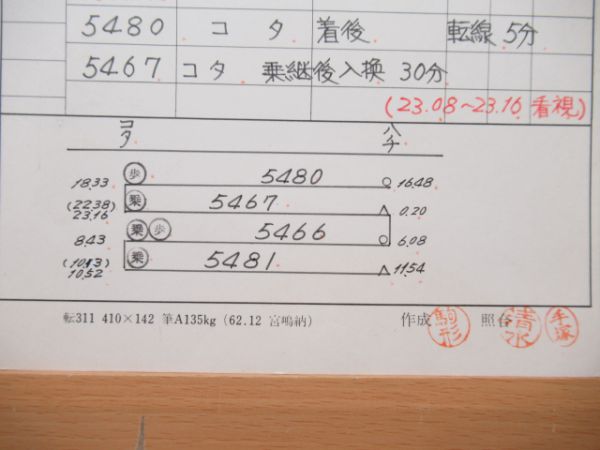 5480 コタ 着後 転線 5分
5467 コタ 乗継後入換 30分
(23.08~23.16 看視)
コタ ハチ
18.33 歩 5480 16.48
(22.38) 乗 5467 0.20
23.16
8.43 乗 歩 5466 6.08
(10.13) 乗 5481 11.54
10.52
転311 410×142 筆A135kg (62.12 宮鳴納) 作成 駒形 照合 清水 手塚